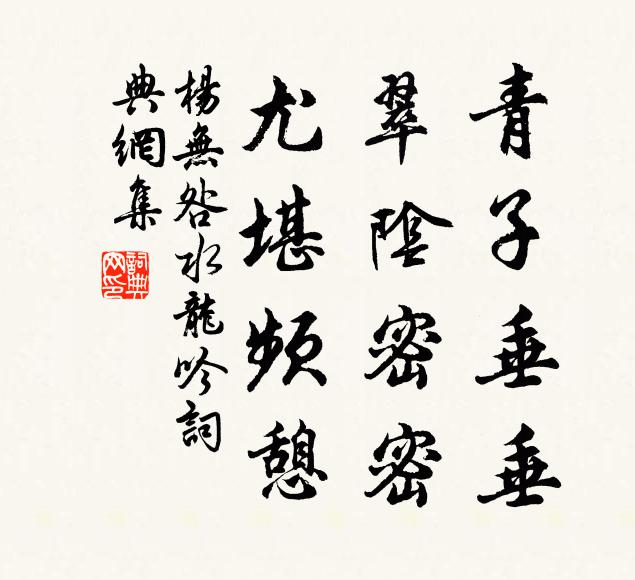 青子垂垂
翠陰密密
尤堪頻憩
楊無咎水龍吟詞
典網集
詞典網印